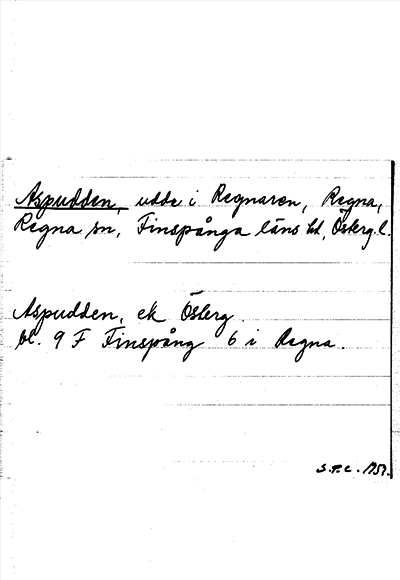 Aspudden, udde i Regnaren, Regna,
Regna sn, Finspånga läns hd, Österg. l.
Aspudden, ek Österg.
bl. 9 F Finspång 6 i Regna.
S.P.C. 1951.